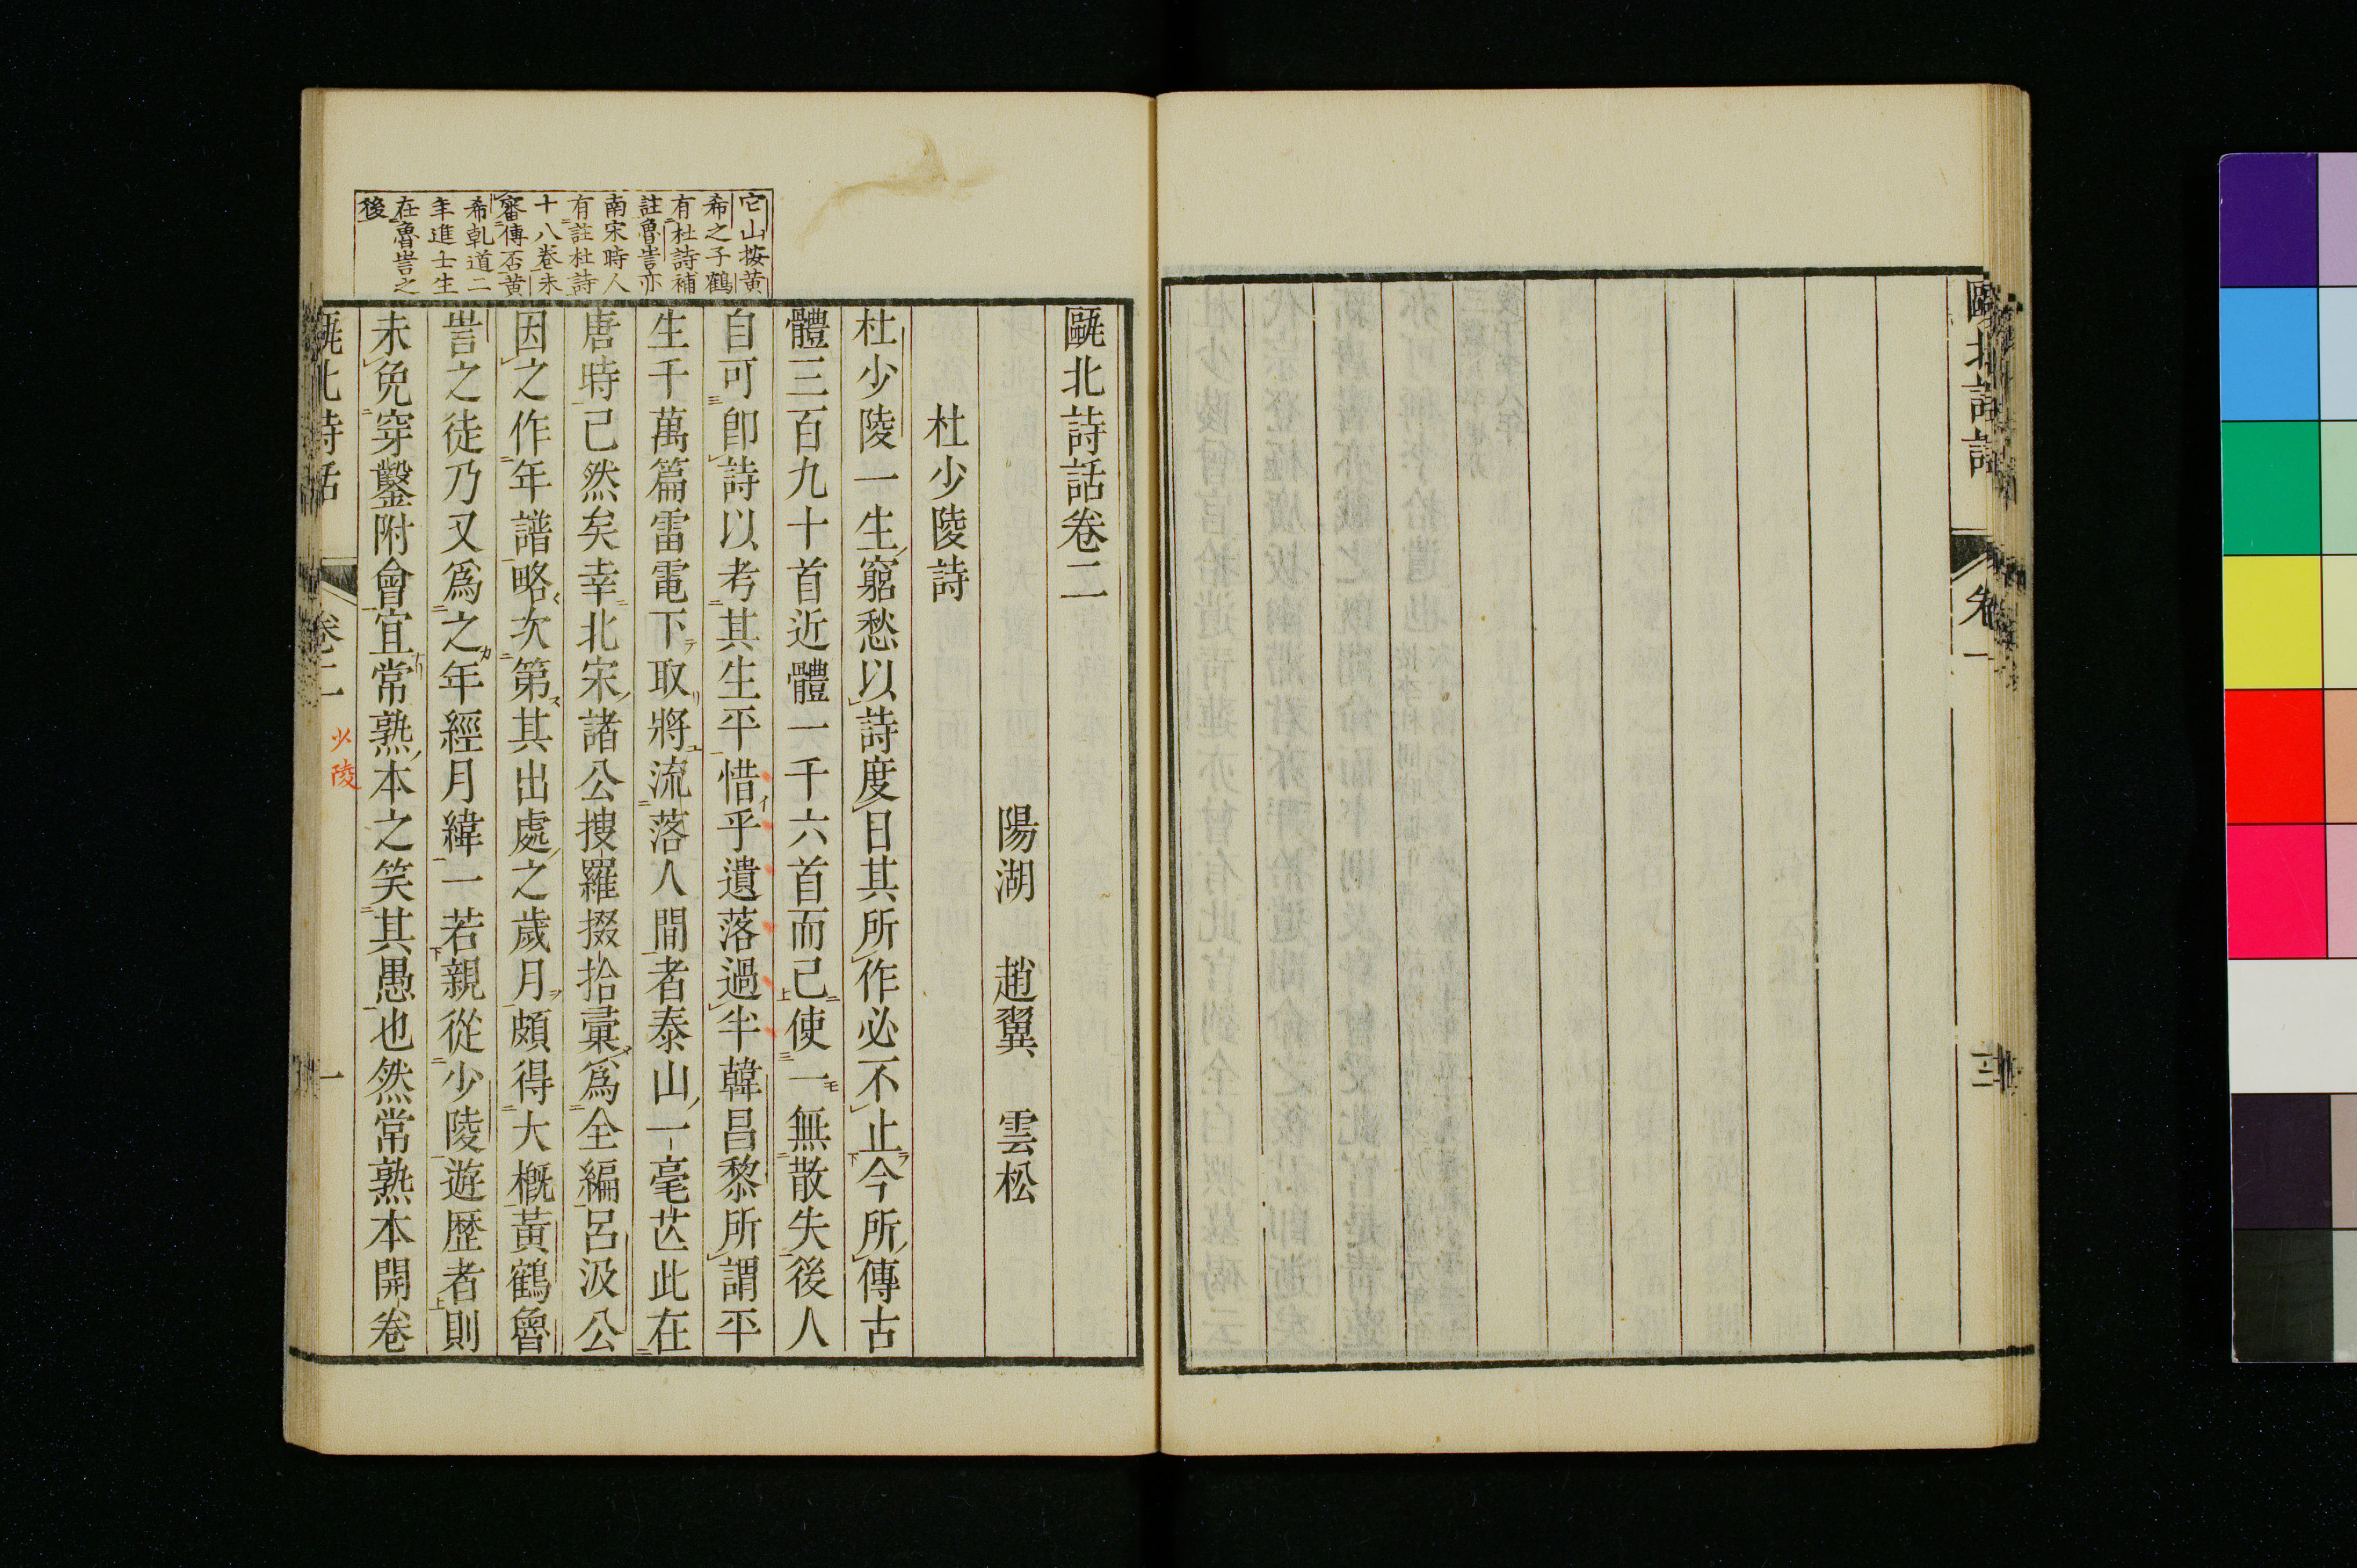 甌北詩話卷二
陽湖 趙翼 雲松
杜少陵詩
杜少陵一生窮愁以詩度日其所作必不止今所傳古
體三百九十首近體一千六首而已使一無散失後人
自可卽詩以考其生平惜乎遺落過半韓昌黎所謂平
生千萬篇雷電下取將流落人間者泰山一毫芒此在
唐時已然矣幸北宋諸公搜羅掇拾彙爲全編呂汲公
因之作年譜略次第其出處之歲月頗得大槪黃鶴魯
訔之徒乃又爲之年經月緯一若親從少陵遊歷者則
未免穿鑿附會宜常熟本之笑其愚也然常熟本開卷
它山按黃
希之子鶴
有杜詩補
註魯訔亦
南宋時人
有註杜詩
十八卷未
審傳否黃
希乹道二
年進士生
在魯訔之
後
甌北詩話 卷二 一
少陵